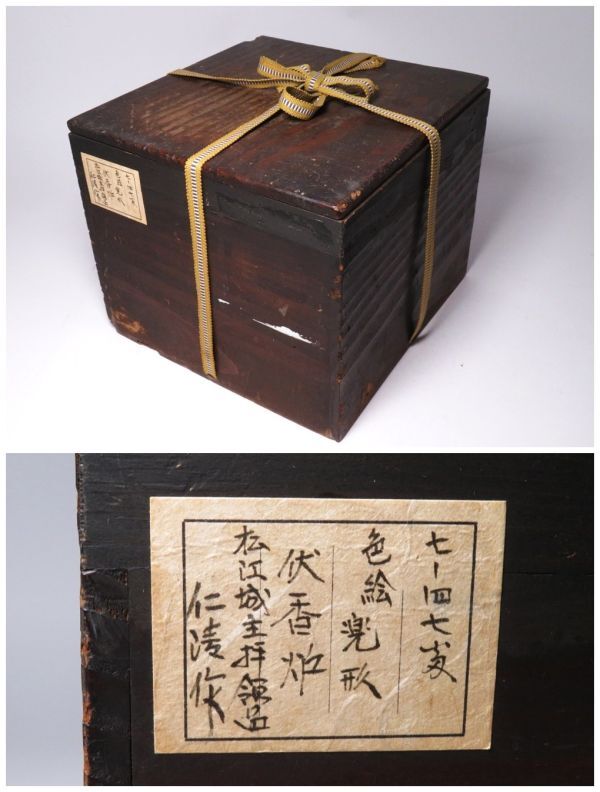 七ー四七号
色絵兜形
伏香炉
松江城主拝領品
仁清作